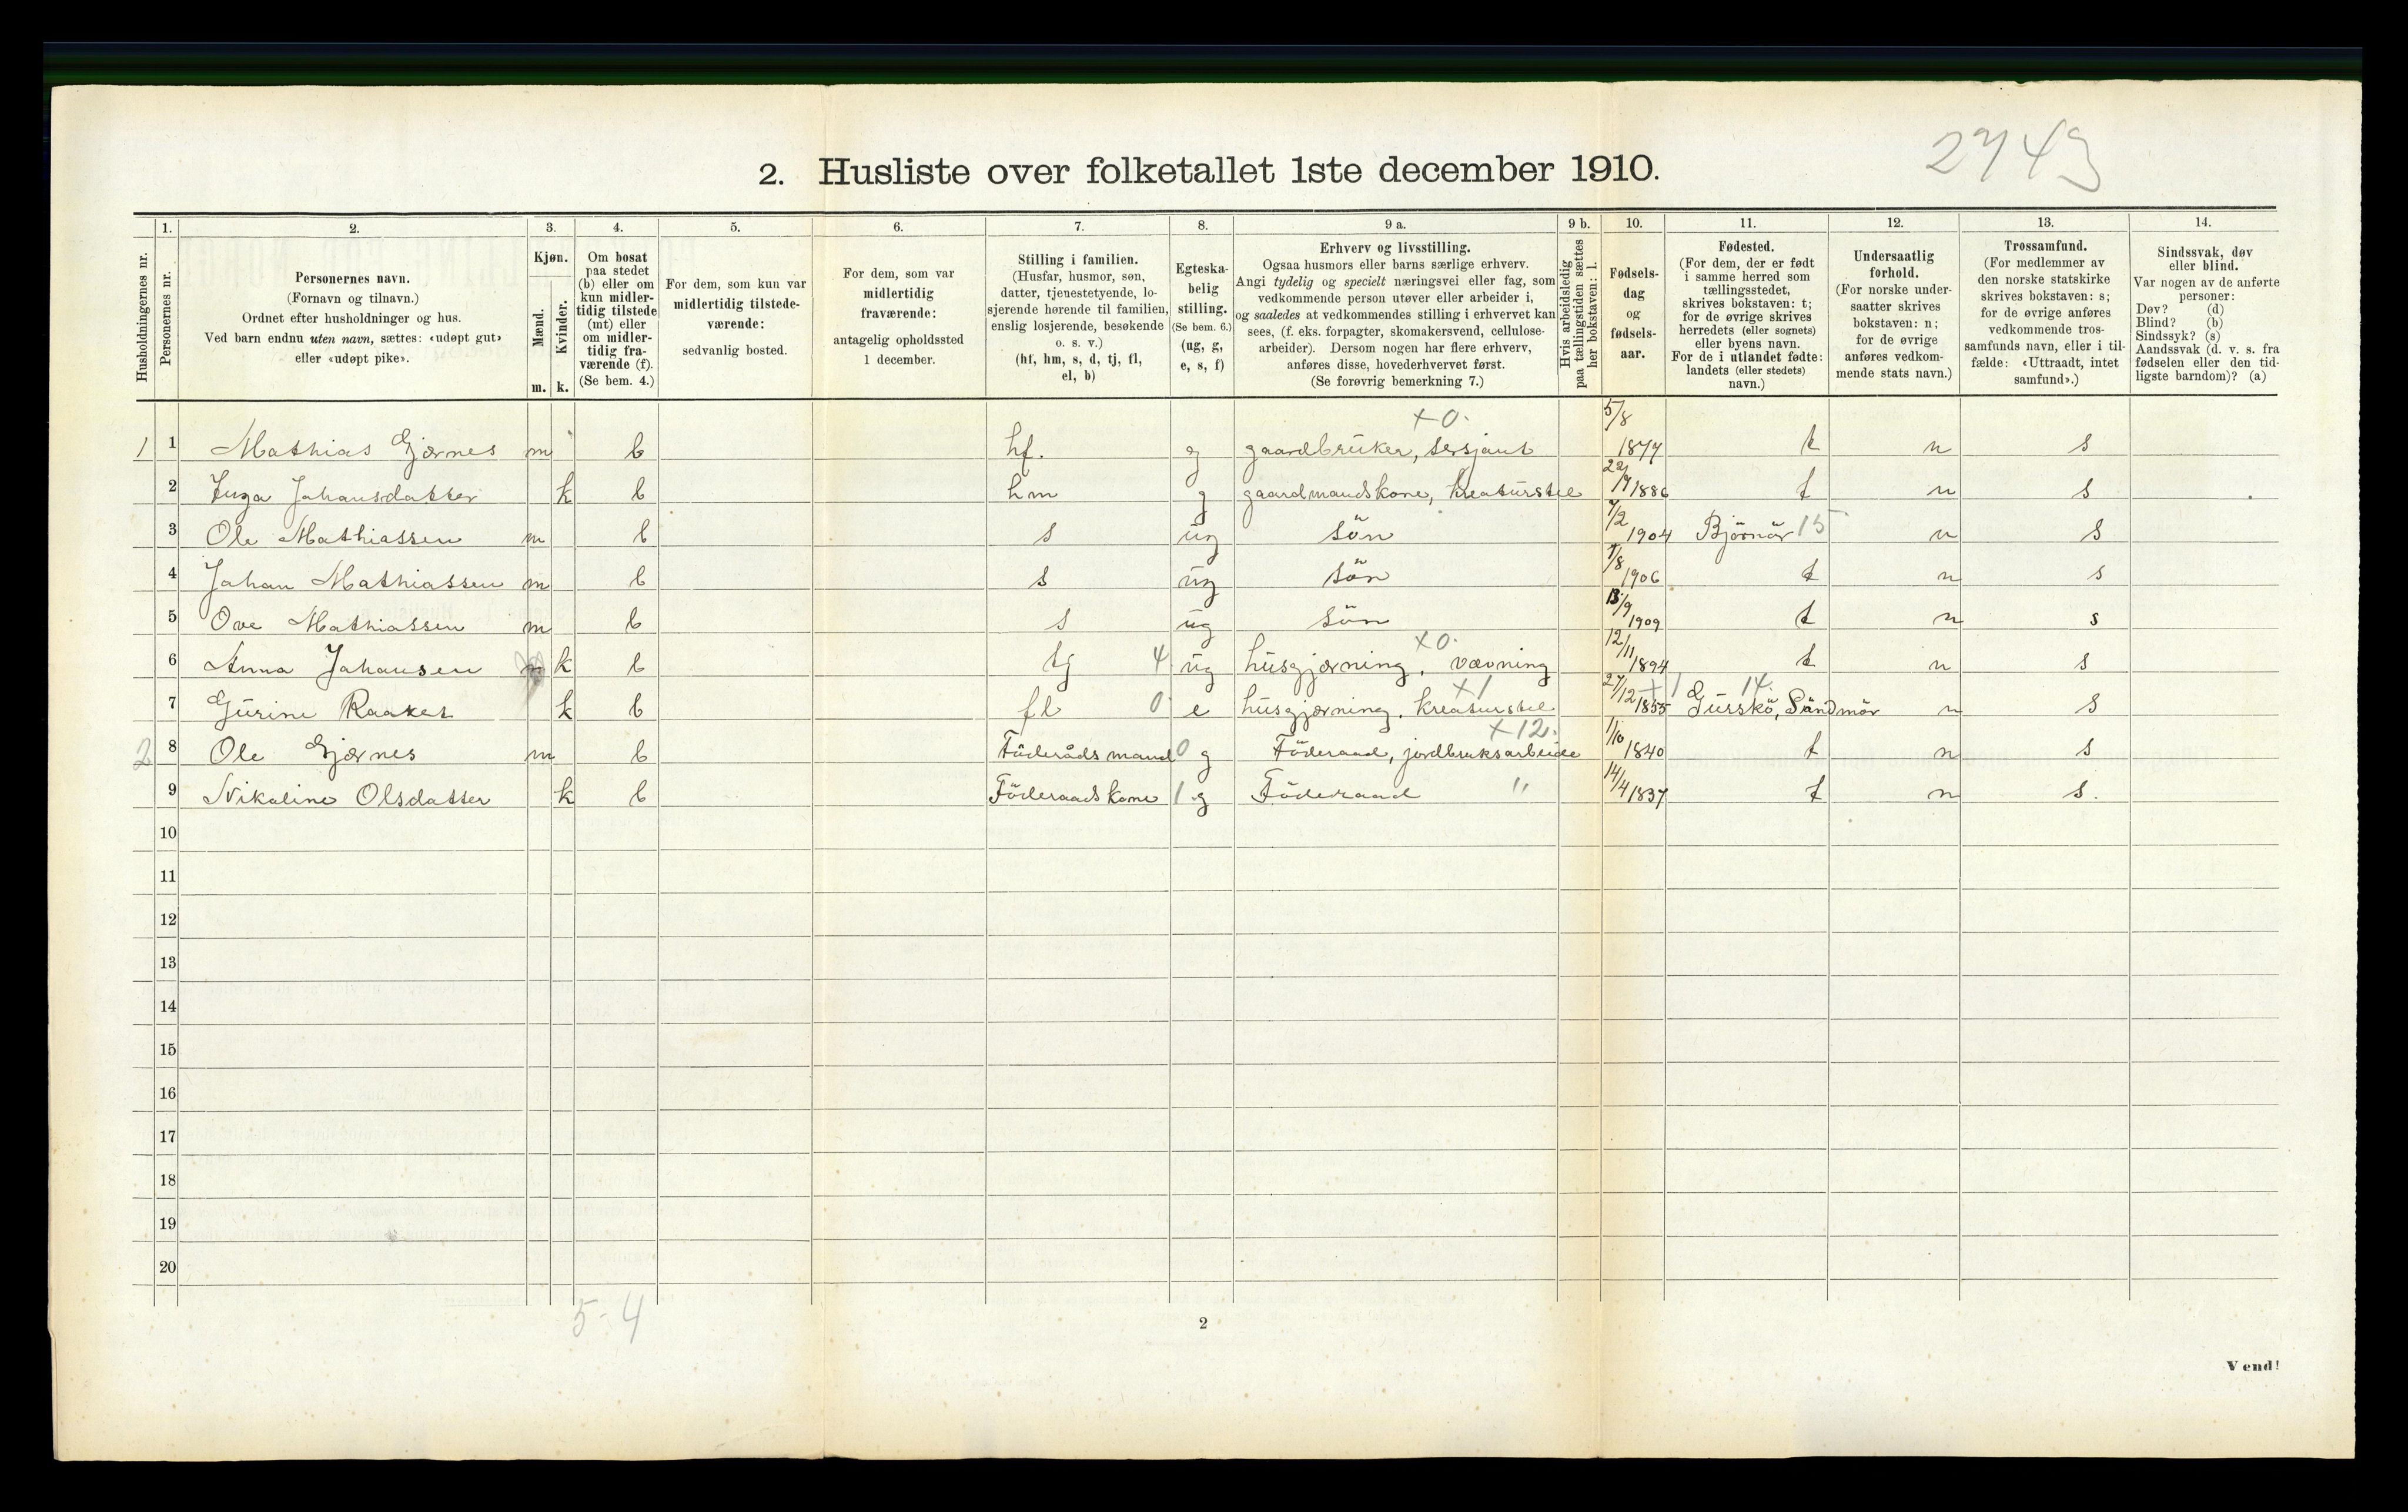 2743
2. Husliste over folketallet 1ste december 1910.
Husholdningernes nr.
1.
Personernes nr.
2.
Personernes navn.
(Fornavn og tilnavn.)
Ordnet efter husholdninger og hus.
Ved barn endnu uten navn, sættes: «udøpt gut»
eller «udøpt pike».
3.
Kjøn.
Mænd.
Kvinder.
m. k.
4.
Om bosat
paa stedet
(b) eller om
kun midler-
tidig tilstede
(mt) eller
om midler-
tidig fra-
værende (f).
(Se bem. 4.)
5.
For dem, som kun var
midlertidig tilstede-
værende:
sedvanlig bosted.
6.
For dem, som var
midlertidig
fraværende:
antagelig opholdssted
1 december.
7.
Stilling i familien.
(Husfar, husmor, søn,
datter, tjenestetyende, lo-
sjerende hørende til familien,
enslig losjerende, besøkende
o. s. v.)
(hf, hm, s, d, tj, fl,
el, b)
8.
Egteska-
belig
stilling.
(Se bem. 6.)
(ug, g,
e, s, f)
9 a.
Erhverv og livsstilling.
Ogsaa husmors eller barns særlige erhverv.
Angi tydelig og specielt næringsvei eller fag, som
vedkommende person utøver eller arbeider i,
og saaledes at vedkommendes stilling i erhvervet kan
sees, (f. eks. forpagter, skomakersvend, cellulose-
arbeider). Dersom nogen har flere erhverv,
anføres disse, hovederhvervet først.
(Se forøvrig bemerkning 7.)
9 b.
Hvis arbeidsledig
paa tællingstiden sættes
her bokstaven: l.
10.
Fødsels-
dag
og
fødsels-
aar.
11.
Fødested.
(For dem, der er født
i samme herred som
tællingsstedet,
skrives bokstaven: t;
for de øvrige skrives
herredets (eller sognets)
eller byens navn.
For de i utlandet fødte:
landets (eller stedets)
navn.)
12.
Undersaatlig
forhold.
(For norske under-
saatter skrives
bokstaven: n;
for de øvrige
anføres vedkom-
mende stats navn.)
13.
Trossamfund.
(For medlemmer av
den norske statskirke
skrives bokstaven: s;
for de øvrige anføres
vedkommende tros-
samfunds navn, eller i til-
fælde: «Uttraadt, intet
samfund».)
14.
Sindssvak, døv
eller blind.
Var nogen av de anførte
personer:
Døv? (d)
Blind? (b)
Sindssyk? (s)
Aandssvak (d. v. s. fra
fødselen eller den tid-
ligste barndom)? (a)
1 1 Mathias Gjærnes m b hf. g gaardbruker, sersjant +0. 5/8 1877 t n s
2 Inga Johansdatter k b hm g gaardmandskone, kreaturstel 22/9 1886 t n s
3 Ole Mathiassen m b s ug sön 7/2 1904 Björnör 15 n s
4 Johan Mathiassen m b s ug sön 1/8 1906 t n s
5 Ove Mathiassen m b s ug sön 13/9 1909 t n s
6 Anna Johansen k b tj 4 ug husgjærning, vævning +0. 12/11 1894 t n s
7 Gurine Raaket k b fl 0 e husgjærning, kreaturstel +1 27/12 1855 +1 Gurskö, Söndmör 14 n s
2 8 Ole Gjærnes m b Föderåds mand 0 g Föderaad, jordbruksarbeide +12. 1/10 1840 t n s
9 Nikoline Olsdatter k b Föderaads kone 1 g Föderaad " 14/4 1837 t n s.
10
11
12
13
14
15
16
17
18
19
20
5-4
2
Vend!